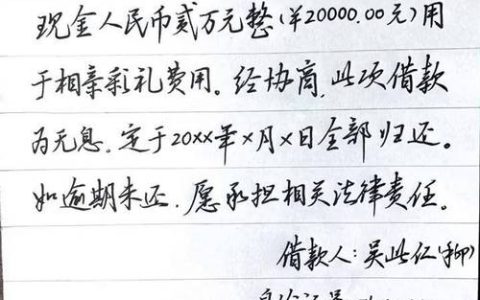 现金人民币贰万元整(￥20000.00元)用
于相亲彩礼费用。经协商,此项借款
为无息,定于20xx年x月x日全部归还。
如逾期未还,愿承担相关法律责任。
借款人:吴此仁(手印)